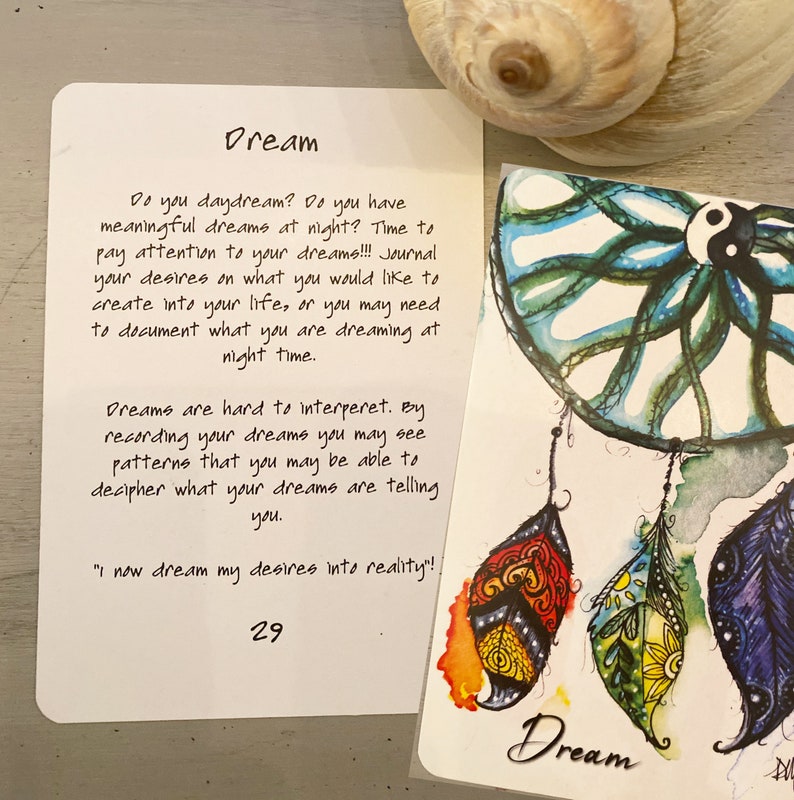 Dream
Do you daydream? Do you have
meaningful dreams at night? Time to
pay attention to your dreams!!! Journal
your desires on what you would like to
create into your life, or you may need
to document what you are dreaming at
night time.
Dreams are hard to interperet. By
recording your dreams you may see
patterns that you may be able to
decipher what your dreams are telling
you.
"I now dream my desires into reality"!
29
Dream